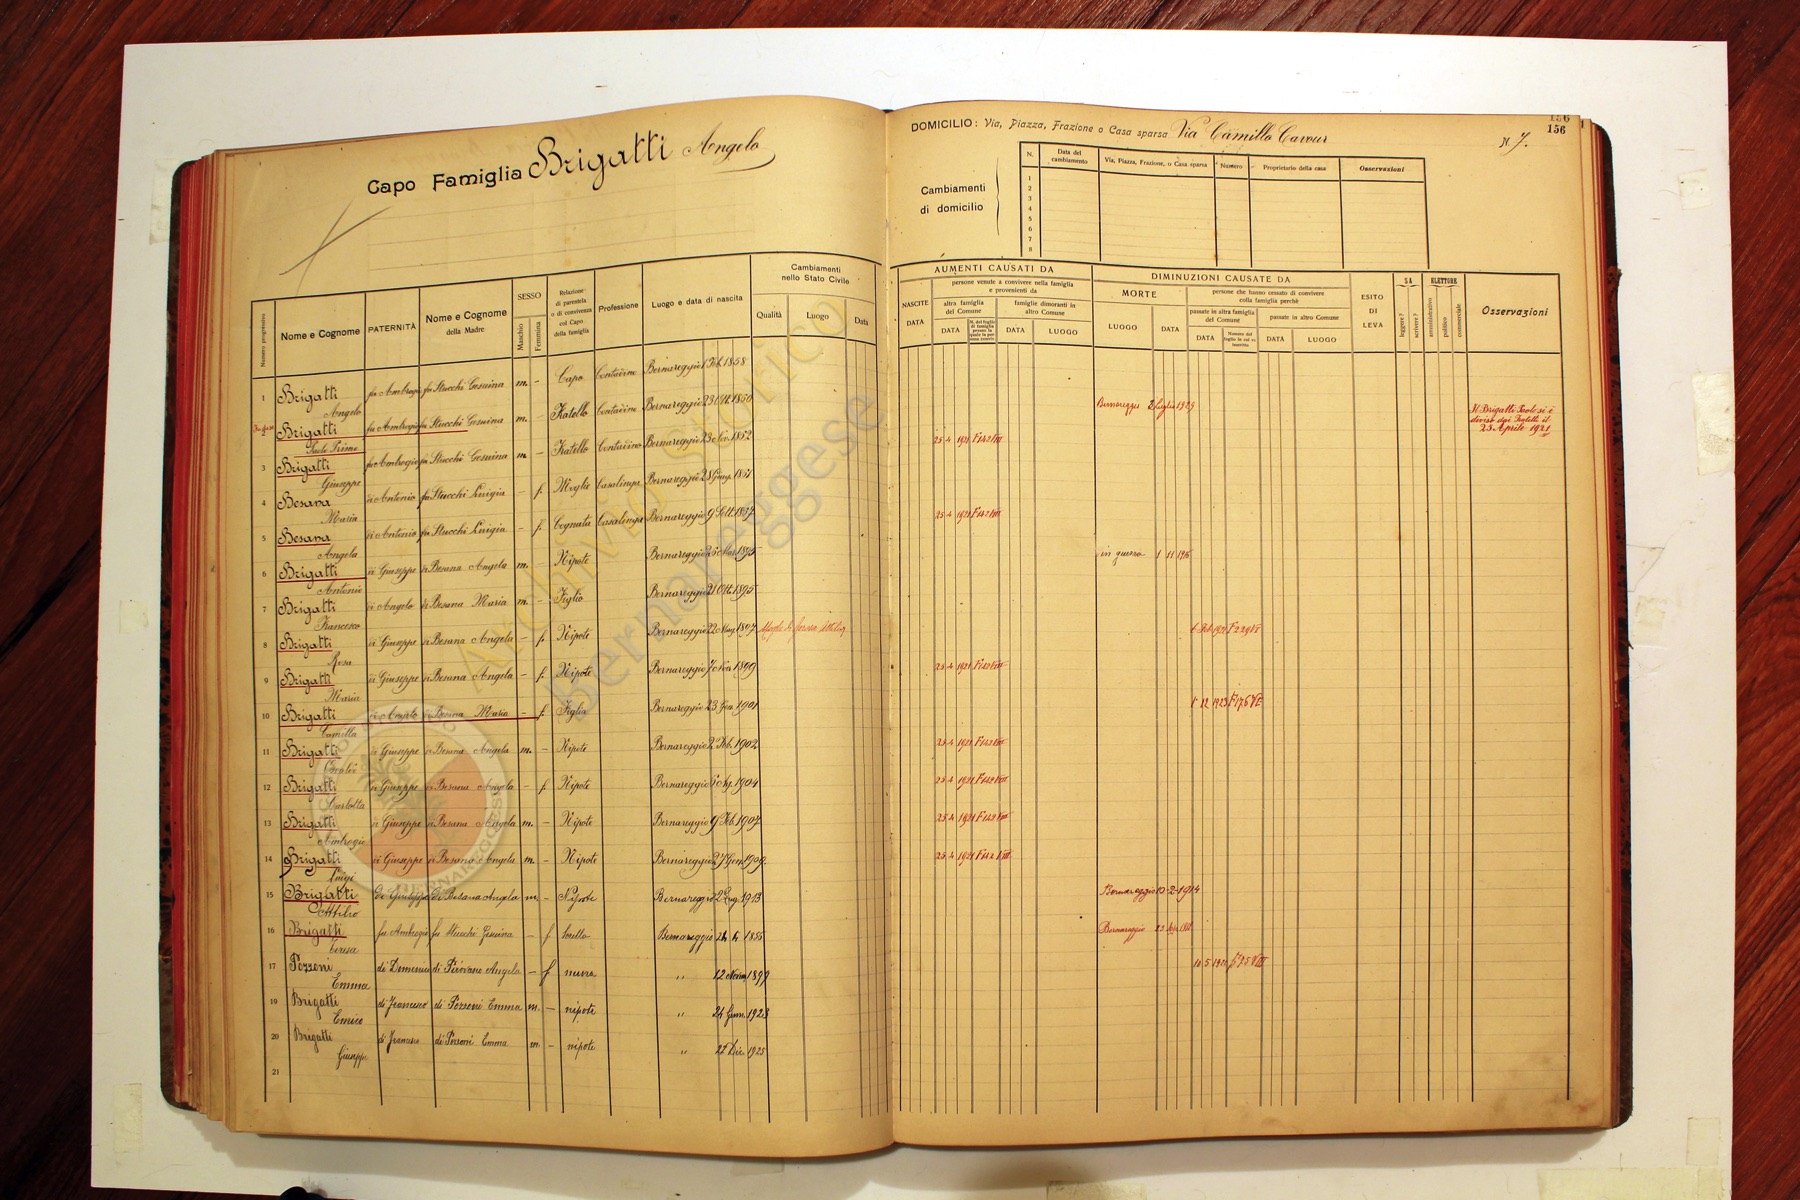 Capo Famiglia Brigatti Angelo
DOMICILIO: Via, Piazza, Frazione o Casa sparsa Via Camillo Cavour N. 7.
156
156
Cambiamenti di domicilio
N. Data del cambiamento Via, Piazza, Frazione, o Casa sparsa Numero Proprietario della casa Osservazioni
1
2
3
4
5
6
7
8
Numero progressivo Nome e Cognome PATERNITÀ Nome e Cognome della Madre SESSO Maschio Femmina Relazione di parentela o di convivenza col Capo della famiglia Professione Luogo e data di nascita Cambiamenti nello Stato Civile Qualità Luogo Data
NASCITE DATA AUMENTI CAUSATI DA persone venute a convivere nella famiglia e provenienti da altra famiglia del Comune DATA famiglie dimoranti in altro Comune DATA LUOGO
DIMINUZIONI CAUSATE DA MORTE LUOGO DATA persone che hanno cessato di convivere colla famiglia perchè passate in altra famiglia del Comune DATA passate in altro Comune DATA LUOGO
ESITO DI LEVA SA leggere? scrivere? ELETTORE amministrativo politico commerciale Osservazioni
1 Brigatti Angelo fu Ambrogio fu Stucchi Gesuina m. – Capo Contadino Bernareggio 1 Feb. 1858
2 Brigatti Paolo Primo fu Ambrogio fu Stucchi Gesuina m. – Fratello Contadino Bernareggio 23 Ott. 1850 Bernareggio Luglio 1925
Il Brigatti Paolo si è diviso dai Fratelli il 25 Aprile 1921
3 Brigatti Giuseppe fu Ambrogio fu Stucchi Gesuina m – Fratello Contadino Bernareggio 23 1852 25 4 1921 F 142 VIII
4 Besana Maria di Antonio fu Stucchi Luigia – f. Moglie Casalinga Bernareggio 28
5 Besana Angela di Antonio fu Stucchi Luigia – f. Cognata Casalinga Bernareggio 9 Sett. 25 4 1921 F 142 VIII
6 Brigatti Antonio di Giuseppe di Besana Angela m. – Nipote Bernareggio 1895 in guerra 1 11 1916
7 Brigatti Francesco di Angelo di Besana Maria m. – Figlio Bernareggio 21 Ott. 1895
8 Brigatti Rosa di Giuseppe di Besana Angela – f. Nipote Bernareggio 22 1897 6 Feb 1921 F 229 VI
9 Brigatti Maria di Giuseppe di Besana Angela – f. Nipote Bernareggio 7 Nov. 1899 25 4 1921 F 142 VIII
10 Brigatti Camilla di Angelo di Besana Maria – f. Figlia Bernareggio 23 Gen. 1901 1 12 1923 F 176 VI
11 Brigatti di Giuseppe di Besana Angela m – Nipote Bernareggio 2 Feb. 1902 25 4 1921 F 142 VIII
12 Brigatti Carlotta di Giuseppe di Besana Angela – f. Nipote Bernareggio Ag. 1904 25 4 1921 F 142 VIII
13 Brigatti Ambrogio di Giuseppe di Besana Angela m. – Nipote Bernareggio 9 Feb. 1907 25 4 1921 F 142 VIII
14 Brigatti Luigi di Giuseppe di Besana Angela m. – Nipote Bernareggio 27 Gen. 1909 25 4 1921 F 142 VIII
15 Brigatti Attilio di Giuseppe di Besana Angela m. – Nipote Bernareggio 2 Lug. 1913 Bernareggio 10-2-1914
16 Brigatti Teresa fu Ambrogio fu Stucchi Gesuina – f Sorella Bernareggio 1855 Bernareggio
17 Pozzoni Emma di Domenico di Pirovano Angela – f nuora " 12 1899 10 5 F 75 VIII
19 Brigatti Enrico di Francesco di Pozzoni Emma m. – nipote " 24 Genn. 1923
20 Brigatti Giuseppe di Francesco di Pozzoni Emma m – nipote " 22 Dic. 1925
21
Archivio Storico
Bernareggese